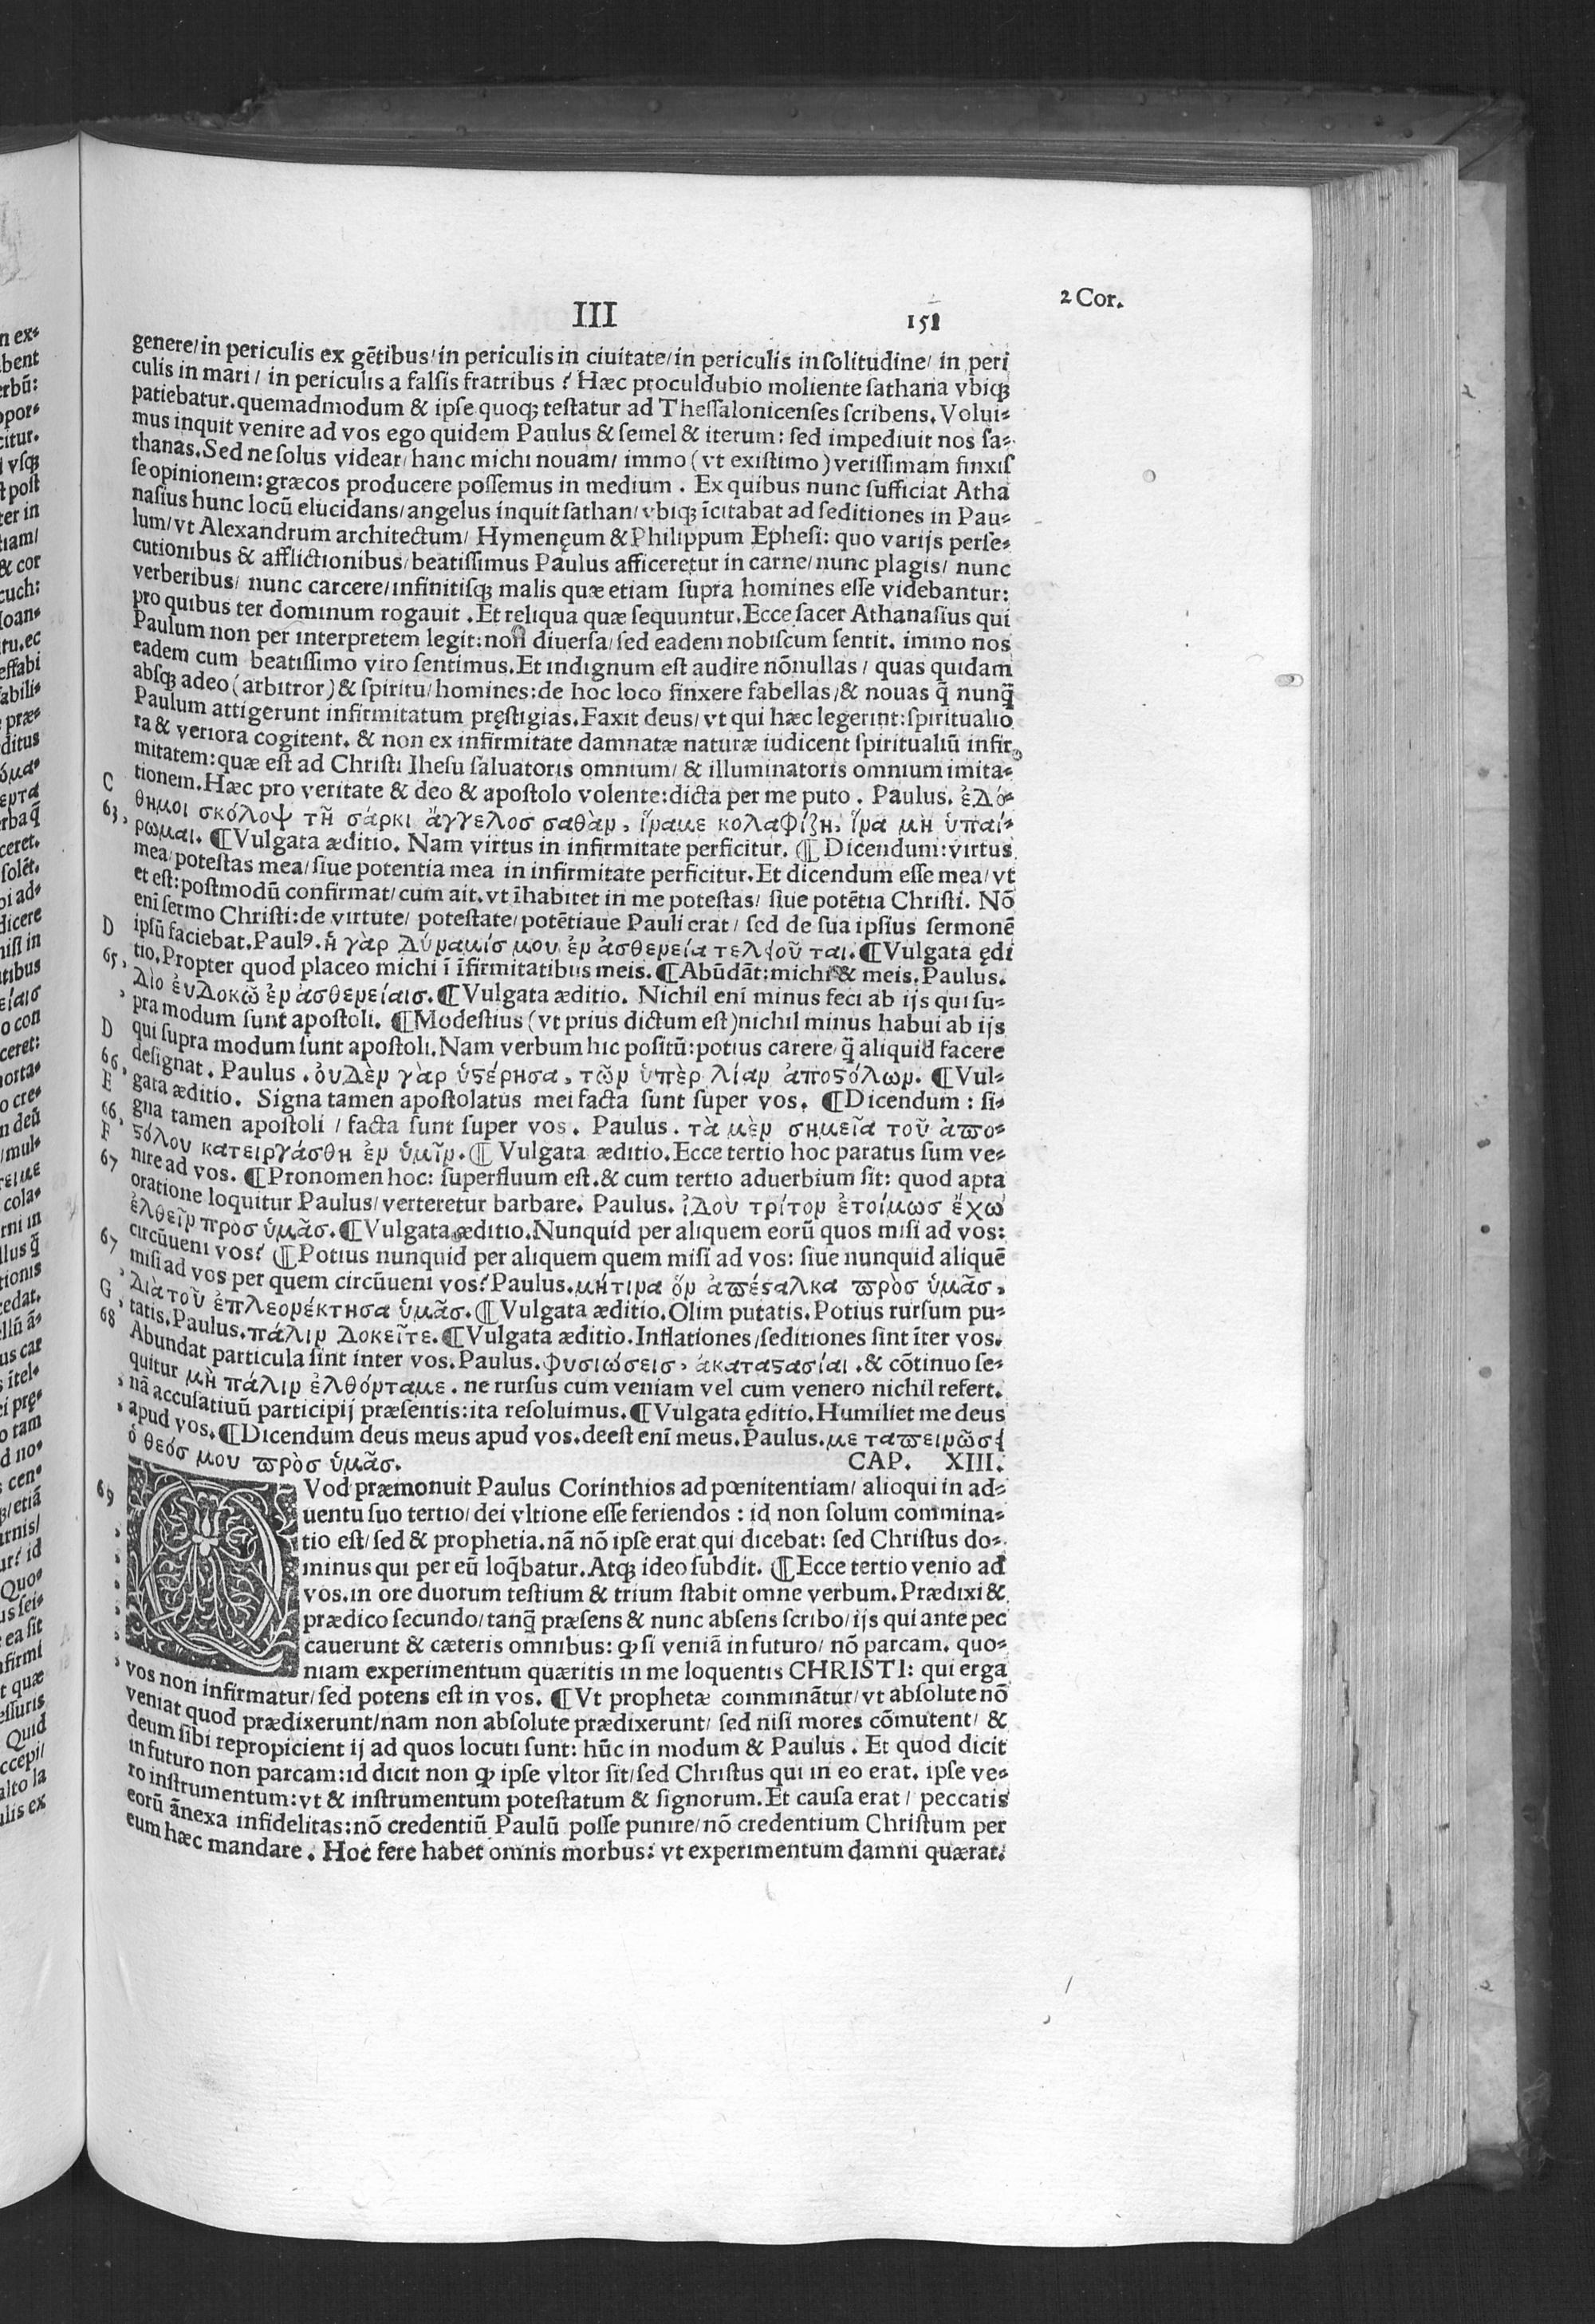 III 151 2 Cor.
genere/in periculis ex gētibus/in periculis in ciuitate/in periculis in solitudine/ in peri
culis in mari/ in periculis a falsis fratribus ? Hæc proculdubio moliente sathana vbiqꝫ
patiebatur.quemadmodum & ipse quoqꝫ testatur ad Thessalonicenses scribens. Volui-
mus inquit venire ad vos ego quidem Paulus & semel & iterum: sed impediuit nos sa-
thanas.Sed ne solus videar/hanc michi nouam/ immo (vt existimo) verissimam finxis
se opinionem:græcos producere possemus in medium . Ex quibus nunc sufficiat Atha
nasius hunc locū elucidans/angelus inquit sathan/vbiqꝫ īcitabat ad seditiones in Pau-
lum/vt Alexandrum architectum/ Hymenęum & Philippum Ephesi: quo varijs perse-
cutionibus & afflictionibus/beatissimus Paulus afficeretur in carne/nunc plagis/ nunc
verberibus/ nunc carcere/infinitisqꝫ malis quæ etiam supra homines esse videbantur:
pro quibus ter dominum rogauit . Et reliqua quæ sequuntur. Ecce sacer Athanasius qui
Paulum non per interpretem legit:non diuersa/sed eadem nobiscum sentit. immo nos
eadem cum beatissimo viro sentimus.Et indignum est audire nōnullas / quas quidam
absqꝫ adeo (arbitror) & spiritu/homines:de hoc loco finxere fabellas/& nouas q̄ nunq̄
Paulum attigerunt infirmitatum pręstigias.Faxit deus/vt qui hæc legerint:spiritualio
ra & veriora cogitent. & non ex infirmitate damnatæ naturæ iudicent spiritualiū infir
mitatem:quæ est ad Christi Ihesu saluatoris omnium/ & illuminatoris omnium imita-
C tionem.Hæc pro veritate & deo & apostolo volente:dicta per me puto . Paulus. ἐδό-
63, θημοι σκόλοψ τῆ σάρκι ἄγγελοσ σαθὰν, ἵναμε κολαφίζη, ἵνα μὴ ὑπαί-
ρωμαι. ¶Vulgata æditio. Nam virtus in infirmitate perficitur. ¶ Dicendum:virtus
mea/potestas mea/siue potentia mea in infirmitate perficitur.Et dicendum esse mea/vt
et est:postmodū confirmat/cum ait.vt īhabitet in me potestas/ siue potētia Christi. Nō
eni sermo Christi:de virtute/ potestate/potētiaue Pauli erat/ sed de sua ipsius sermonē
D ipsū faciebat.Paulꝰ.ἡ γὰρ δύναμίσ μου ἐν ἀσθενεία τελειοῦ ται.¶Vulgata ędi
65, tio.Propter quod placeo michi ī īfirmitatibus meis.¶Abūdāt:michi & meis.Paulus.
Διο ἐυδοκῶ ἐν ἀσθενείαισ.¶Vulgata æditio. Nichil enī minus feci ab ijs qui su-
, pra modum sunt apostoli. ¶Modestius (vt prius dictum est)nichil minus habui ab ijs
D qui supra modum sunt apostoli.Nam verbum hic positū:potius carere/q̄ aliquid facere
66, designat. Paulus .ὀυδὲν γὰρ ὑϛέρησα, τῶν ὑπὲρ λίαν ἀποϛόλων. ¶Vul-
E gata æditio. Signa tamen apostolatus mei facta sunt super vos. ¶Dicendum : si-
66, gna tamen apostoli / facta sunt super vos. Paulus. τὰ μὲν σημεῖα τοῦ ἀπο-
F ϛόλου κατειργάσθη ἐν ὑμῖν.¶ Vulgata æditio.Ecce tertio hoc paratus sum ve-
67 nire ad vos. ¶Pronomen hoc: superfluum est.& cum tertio aduerbium sit: quod apta
oratione loquitur Paulus/verteretur barbare. Paulus. ἰδοὺ τρίτον ἑτοίμωσ ἔχω
ἐλθεῖν προσ ὑμᾶσ.¶Vulgata æditio.Nunquid per aliquem eorū quos misi ad vos:
67 circūueni vos? ¶Potius nunquid per aliquem quem misi ad vos: siue nunquid aliquē
, misi ad vos per quem circūueni vos?Paulus.μήτινα ὅν ἀπέϛαλκα πρὸσ ὑμᾶσ,
G Διὰ τοῦ ἐπλεονέκτησα ὑμᾶσ.¶Vulgata æditio.Olim putatis.Potius rursum pu-
68 , tatis.Paulus.πάλιν δοκεῖτε.¶Vulgata æditio.Inflationes/seditiones sint īter vos.
Abundat particula sint inter vos.Paulus.φυσιώσεισ, ἀκαταϛασίαι .& cōtinuo se-
quitur μὴ πάλιν ἐλθόνταμε . ne rursus cum veniam vel cum venero nichil refert.
, nā accusatiuū participij præsentis:ita resoluimus.¶Vulgata ęditio.Humiliet me deus
, apud vos.¶Dicendum deus meus apud vos.deest enī meus.Paulus.με ταπεινῶσει
ὁ θεόσ μου πρὸσ ὑμᾶσ. CAP. XIII.
69 QVod præmonuit Paulus Corinthios ad pœnitentiam/ alioqui in ad-
uentu suo tertio/dei vltione esse feriendos : id non solum commina-
tio est/sed & prophetia.nā nō ipse erat qui dicebat: sed Christus do-
minus qui per eū loq̄batur.Atqꝫ ideo subdit. ¶Ecce tertio venio ad
vos.in ore duorum testium & trium stabit omne verbum.Prædixi &
prædico secundo/tanq̄ præsens & nunc absens scribo/ijs qui ante pec
cauerunt & cæteris omnibus: ꝙ si veniā in futuro/ nō parcam. quo-
niam experimentum quæritis in me loquentis CHRISTI: qui erga
vos non infirmatur/sed potens est in vos. ¶Vt prophetæ comminātur/vt absolute nō
veniat quod prædixerunt/nam non absolute prædixerunt/ sed nisi mores cōmutent/ &
deum sibi repropicient ij ad quos locuti sunt: hūc in modum & Paulus . Et quod dicit
in futuro non parcam:id dicit non ꝙ ipse vltor sit/sed Christus qui in eo erat. ipse ve-
ro instrumentum:vt & instrumentum potestatum & signorum.Et causa erat / peccatis
eorū ānexa infidelitas:nō credentiū Paulū posse punire/nō credentium Christum per
eum hæc mandare . Hoc fere habet omnis morbus: vt experimentum damni quærat.